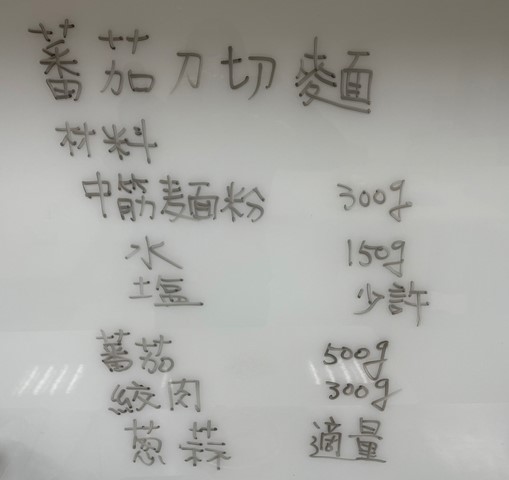 蕃茄刀切麵
材料
中筋麵粉 300g
水 150g
塩 少許
蕃茄 500g
絞肉 300g
葱蒜 適量